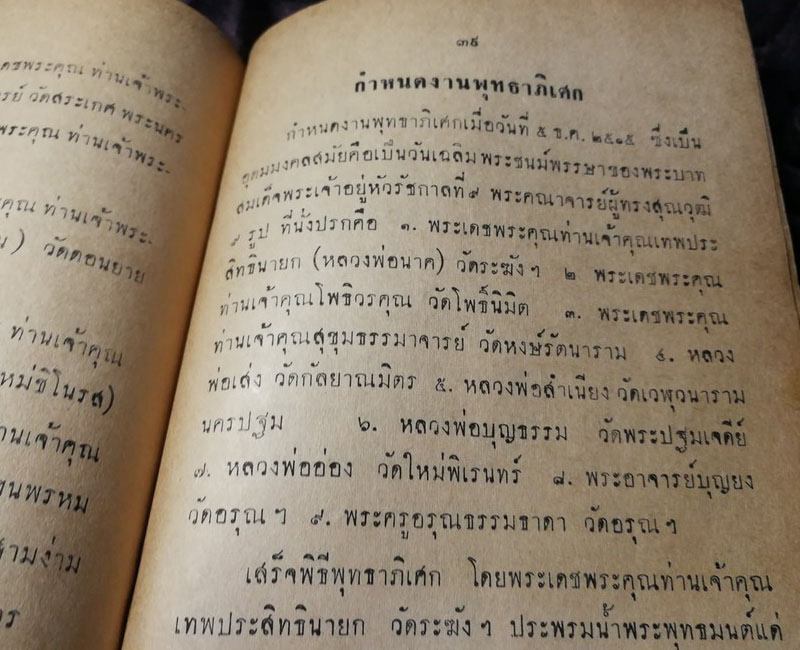 ดชพระคุณ ท่านเจ้าพระ-
รย์ วัดสระเกศ พระนคร
พระคุณ ท่านเจ้าพระ-
คุณ ท่านเจ้าพระ-
) วัดดอนยาย
ท่านเจ้าคุณ
หม่ชิโนรส)
านเจ้าคุณ
ขุนพรหม
สามง่าม
๓๕
กำหนดงานพุทธาภิเศก
กำหนดงานพุทธาภิเศกเมื่อวันที่ ๕ ธ.ค. ๒๕๑๕ ซึ่งเป็น
อุดมมงคลสมัยคือเป็นวันเฉลิมพระชนม์พรรษาของพระบาท
สมเด็จพระเจ้าอยู่หัวรัชกาลที่ ๙ พระคณาจารย์ผู้ทรงสุณวุฒิ
๙ รูป ที่นั่งปรกคือ ๑. พระเดชพระคุณท่านเจ้าคุณเทพประ
สิทธินายก (หลวงพ่อนาค) วัดระฆังฯ ๒ พระเดชพระคุณ
ท่านเจ้าคุณโพธิวรคุณ วัดโพธิ์นิมิต ๓. พระเดชพระคุณ
ท่านเจ้าคุณสุขุมธรรมาจารย์ วัดหงษ์รัตนาราม ๔. หลวง
พ่อเส่ง วัดกัลยาณมิตร ๕. หลวงพ่อสำเนียง วัดเวฬุวนาราม
นครปฐม ๖. หลวงพ่อบุญธรรม วัดพระปฐมเจดีย์
๗. หลวงพ่ออ่อง วัดใหม่พิเรนทร์ ๘. พระอาจารย์บุญยง
วัดอรุณฯ ๙. พระครูอรุณธรรมธาดา วัดอรุณฯ
เสร็จพิธีพุทธาภิเศก โดยพระเดชพระคุณท่านเจ้าคุณ
เทพประสิทธินายก วัดระฆังฯ ประพรมน้ำพระพุทธมนต์แด่